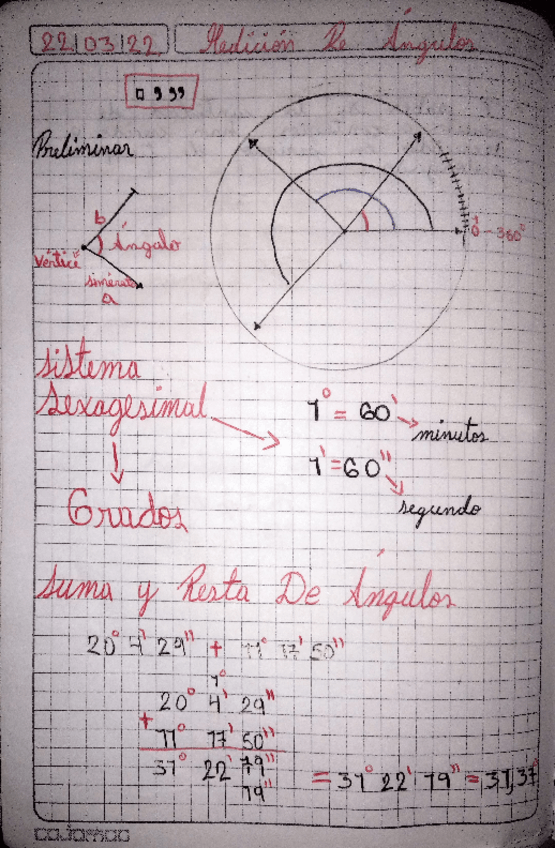 22/03/22 Medición De Ángulos
° ' "
Preliminar
b
Ángulo
vértice
a
0-360°
sistema
sexagesimal
1° = 60'
minutos
1' = 60"
segundo
Grados
suma y Resta De Ángulos
20° 4' 29" + 11° 17' 50"
1°
20° 4' 29"
+
11° 17' 50"
31° 22' 79"
79"
= 31° 22' 79" = 31,37
cajamac